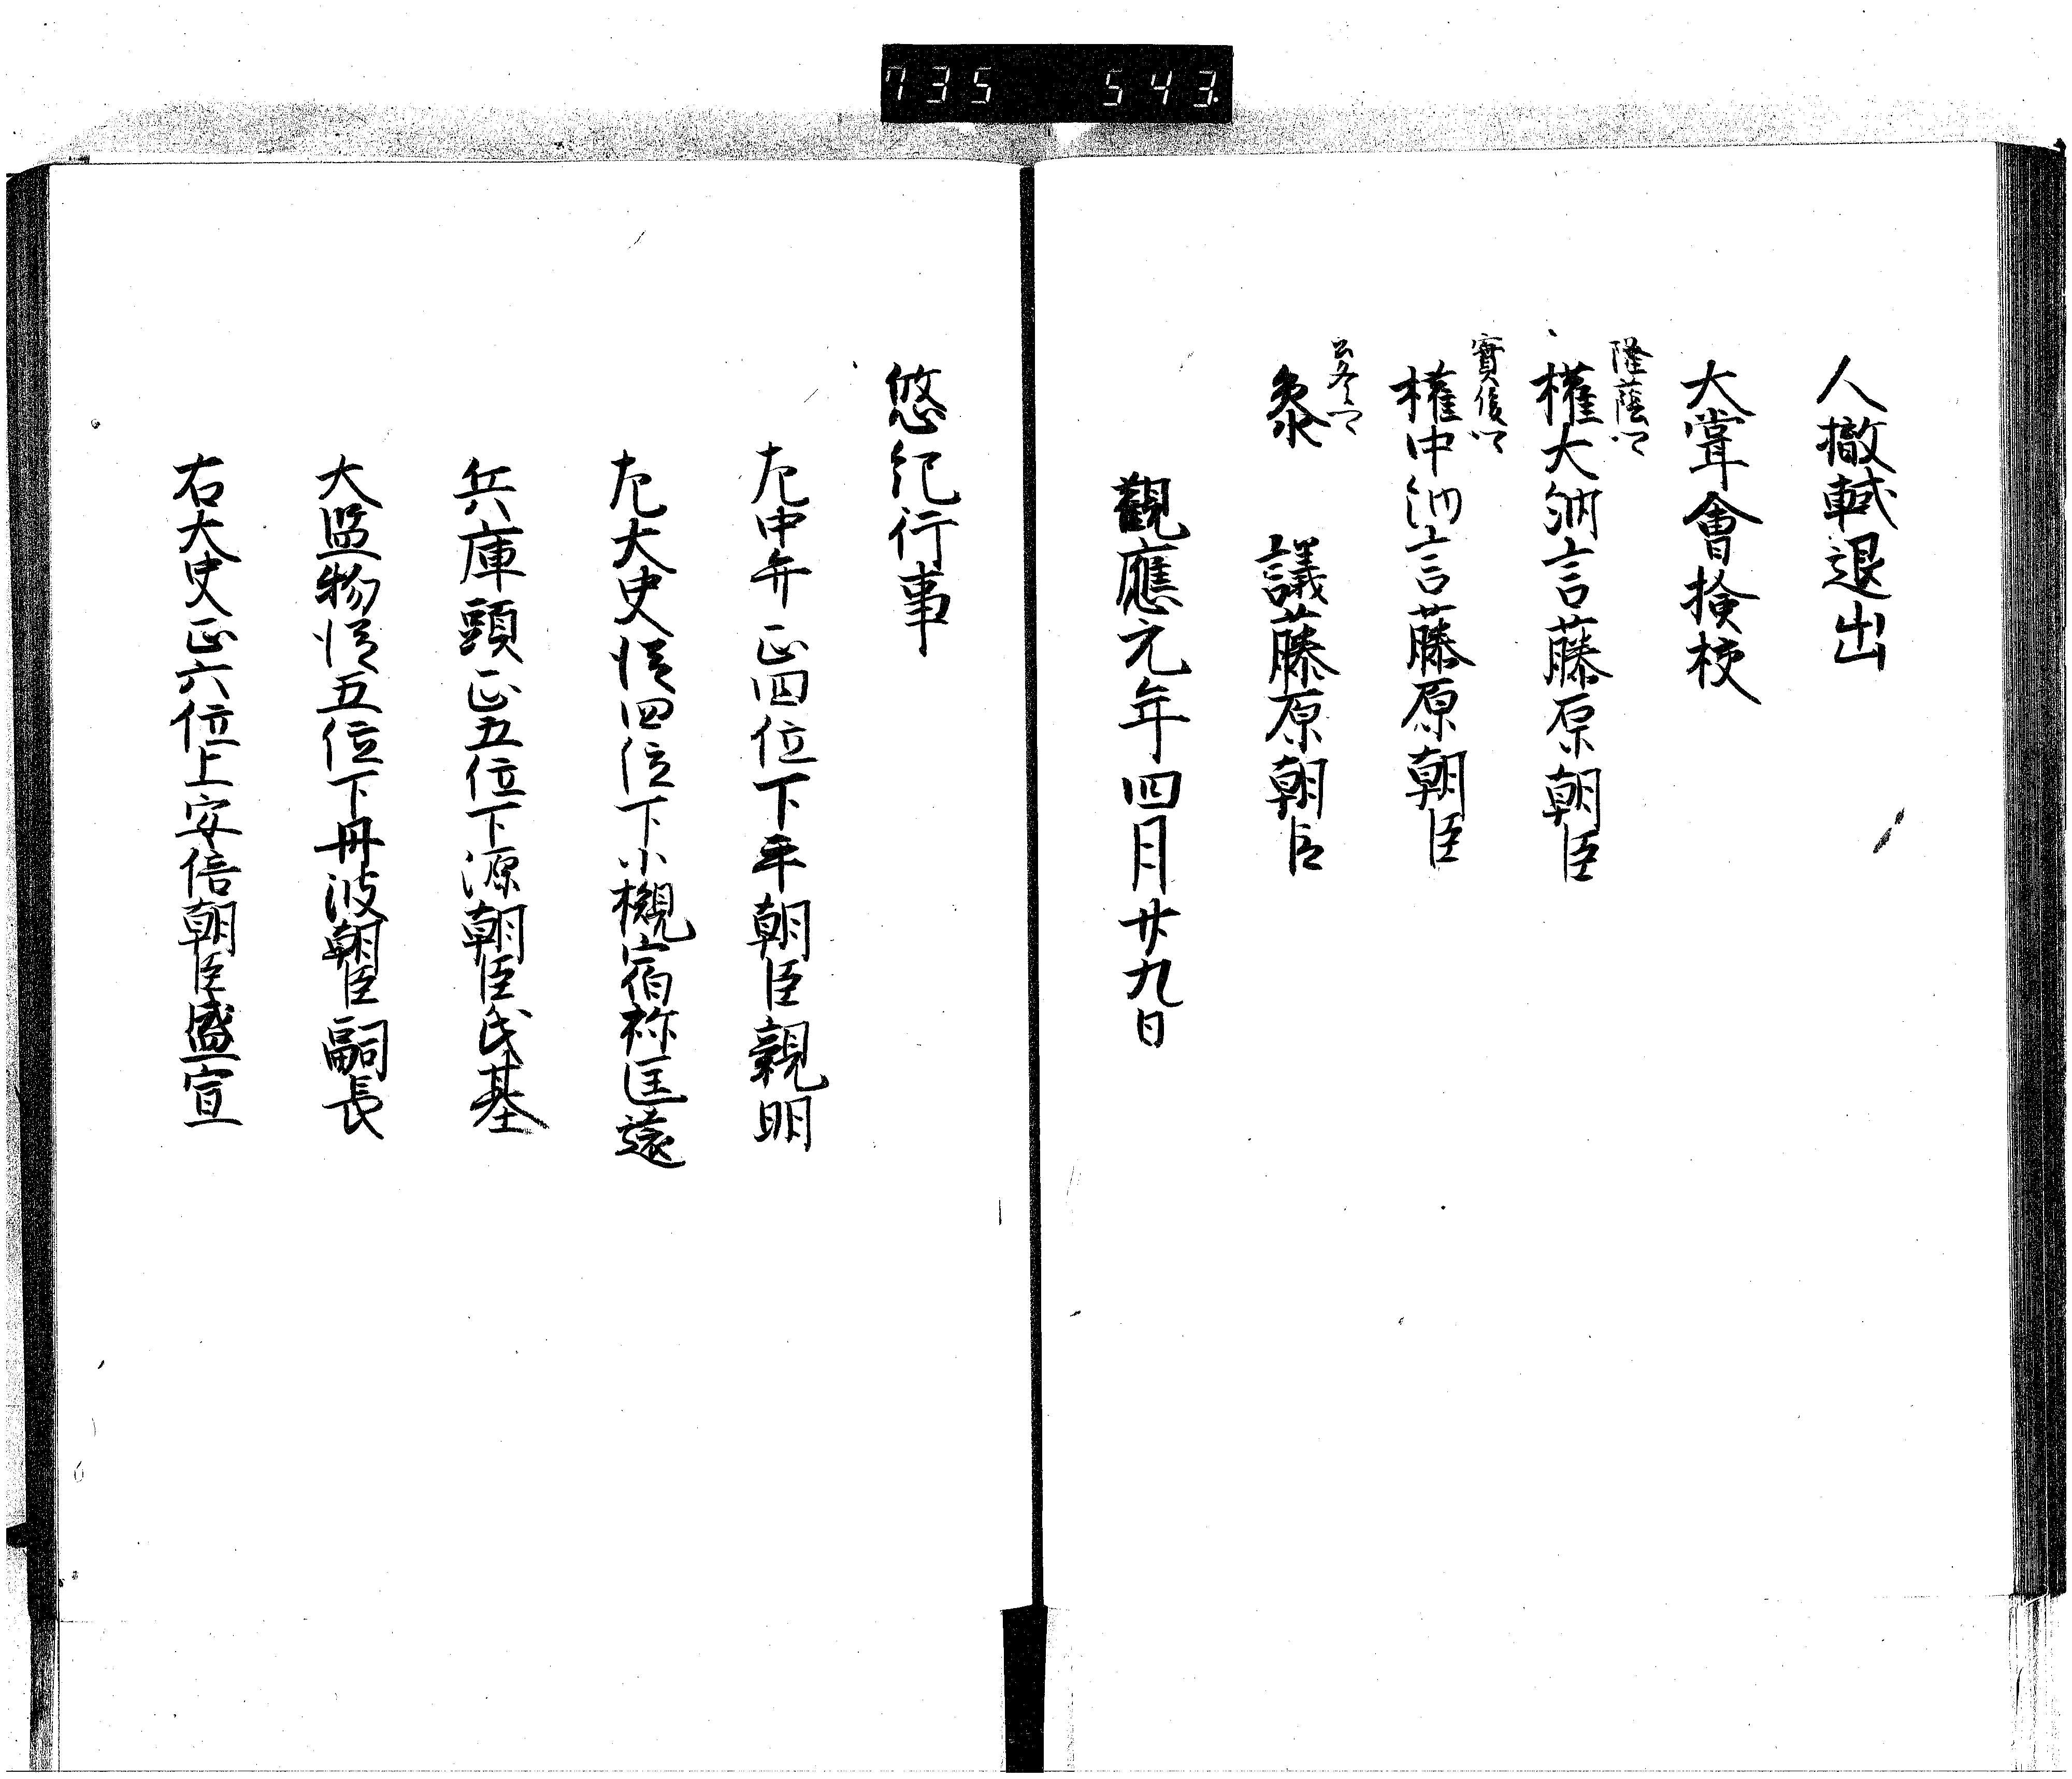 735 543
人撤軾退出
大嘗會撿挍
隆蔭卿
權大納言藤原朝臣
實俊卿
權中納言藤原朝臣
公冬卿
參 議藤原朝臣
觀應元年四月廿九日
悠紀行事
左中弁正四位下平朝臣親明
左大史從四位下小槻宿祢匡遠
兵庫頭正五位下源朝臣氏基
大監物從五位下丹波朝臣嗣長
右大史正六位上安倍朝臣盛宣